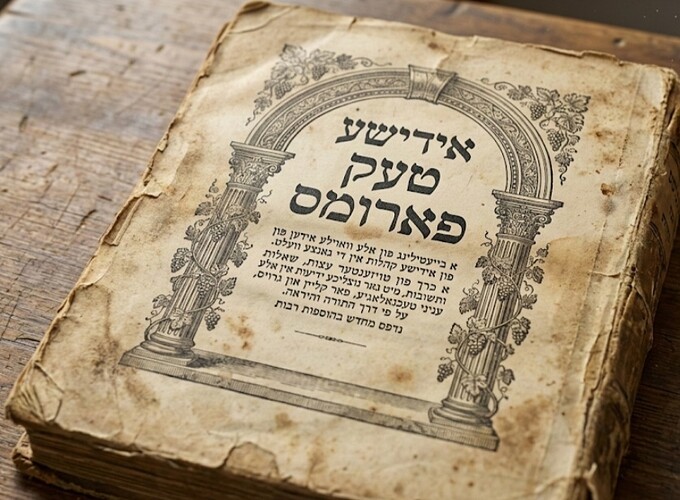 אידישע
טעק
פארומס
א בייעסילינג פון אלע וואוילע אידען פון
פון אידישע קהלות אין די גאנצע וועלט.
א כרך פון טויזענטער עצות, שאלות
ותשובות, מיט גאר נוצליכע ידיעות אין אלע
עניני טעכנאלאגיע, פאר קליין און גרויס,
על פי דרך התורה והיראה.
נדפס מחדש בהוספות רבות